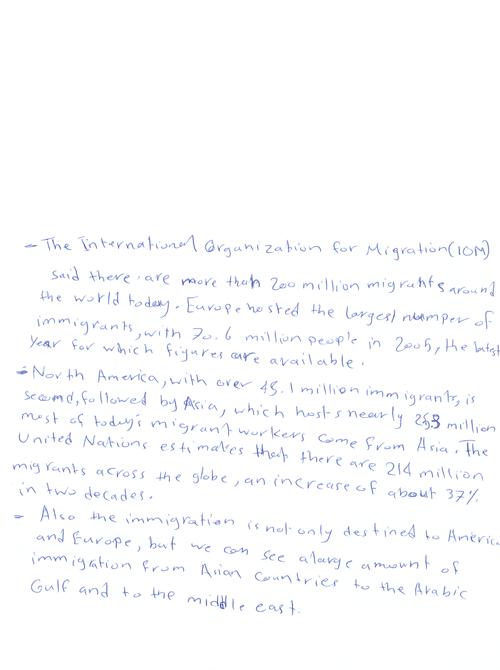 - The International Organization for Migration (IOM)
said there are more than 200 million migrants around
the world today. Europe hosted the largest number of
immigrants, with 70.6 million people in 2005, the latest
year for which figures are available.
- North America, with over 45.1 million immigrants, is
second, followed by Asia, which hosts nearly 25.3 million
most of today's migrant workers come from Asia. The
United Nations estimates that there are 214 million
migrants across the globe, an increase of about 37%
in two decades.
- Also the immigration is not only destined to America
and Europe, but we can see a large amount of
immigation from Asian Countries to the Arabic
Gulf and to the middle east.